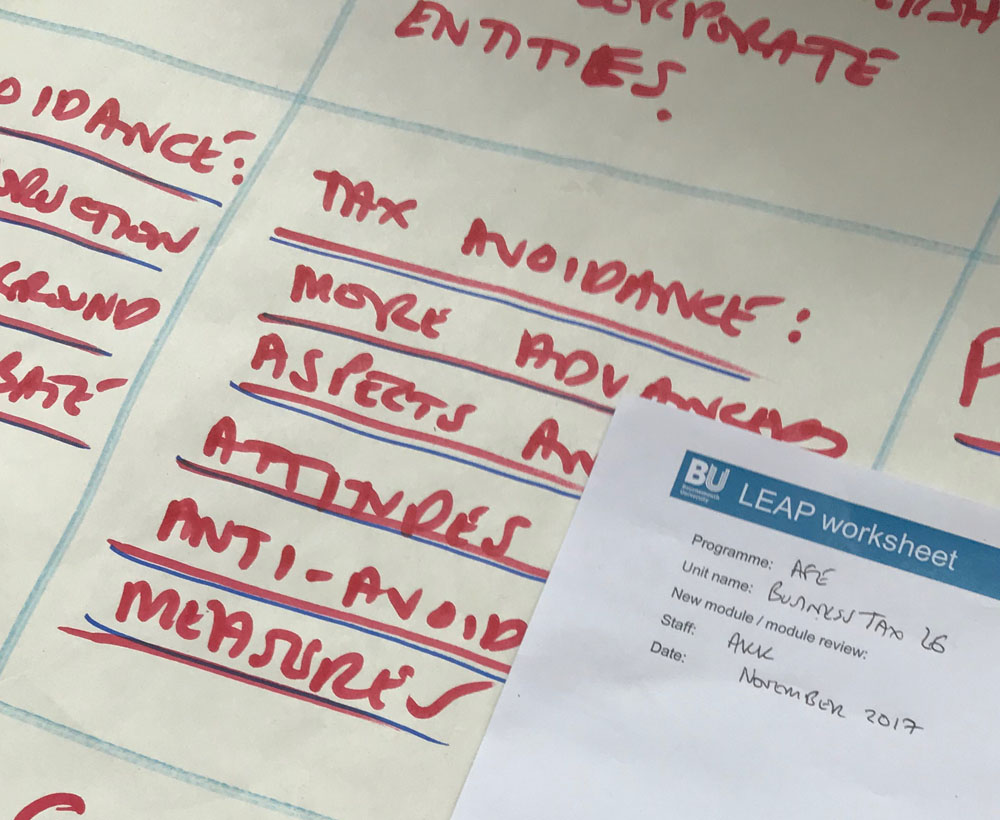 CORPORATE
ENTITIES.
OIDANCE:
RUCTION
GROUND
BATE
TAX AVOIDANCE:
MORE ADVANCED
ASPECTS AN
ATTINDES
ANTI-AVOID
MEASURES
P
BU
Bournemouth
University
LEAP worksheet
Programme: AFE
Unit name: BUSINESS TAX L6
New module / module review:
Staff: AKK
Date: NOVEMBER 2017